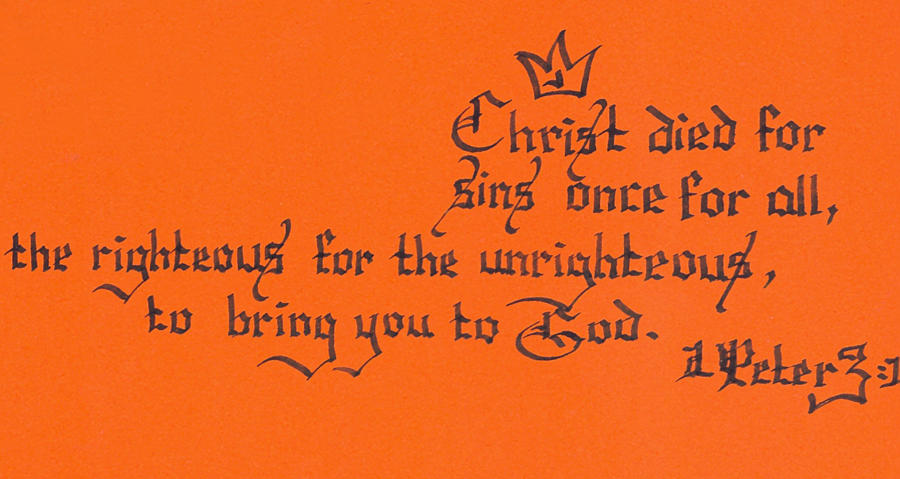 Christ died for
sins once for all,
the righteous for the unrighteous,
to bring you to God.
1 Peter 3:1